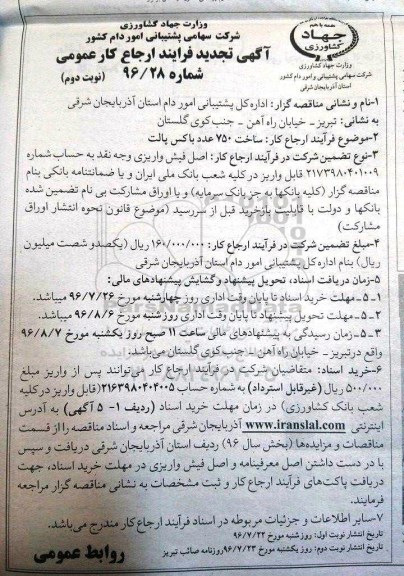 وزارت جهاد کشاورزی
شرکت سهامی پشتیبانی امور دام کشور
آگهی تجدید فرایند ارجاع کار عمومی
شماره ۹۶/۲۸ (نوبت دوم)
جهاد
کشاورزی
وزارت جهاد کشاورزی
شرکت سهامی پشتیبانی امور دام کشور
۱-نام و نشانی مناقصه گزار: اداره کل پشتیبانی امور دام استان آذربایجان شرقی
به نشانی: تبریز - خیابان راه آهن - جنب کوی گلستان
۲-موضوع فرآیند ارجاع کار: ساخت ۷۵۰ عدد باکس پالت
۳-نوع تضمین شرکت در فرآیند ارجاع کار: اصل فیش واریزی وجه نقد به حساب شماره
۲۱۷۳۹۸۰۴۰۱۰۰۹ قابل واریز در کلیه شعب بانک ملی ایران و یا ضمانتنامه بانکی بنام
مناقصه گزار (کلیه بانکها به جز بانک سرمایه) و یا اوراق مشارکت بی نام تضمین شده
بانکها و دولت با قابلیت بازخرید قبل از سررسید (موضوع قانون نحوه انتشار اوراق
مشارکت)
۴-مبلغ تضمین شرکت در فرآیند ارجاع کار: ۱۶۰/۰۰۰/۰۰۰ ریال (یکصد و شصت میلیون
ریال) بنام اداره کل پشتیبانی امور دام استان آذربایجان شرقی
۵-زمان دریافت اسناد، تحویل پیشنهاد و گشایش پیشنهادهای مالی:
۱-۵- مهلت خرید اسناد تا پایان وقت اداری روز چهارشنبه مورخ ۹۶/۷/۲۶ میباشد.
۲-۵- مهلت تحویل پیشنهاد تا پایان وقت اداری روز شنبه مورخ ۹۶/۸/۶ میباشد.
۳-۵- زمان رسیدگی به پیشنهادهای مالی ساعت ۱۱ صبح روز یکشنبه مورخ ۹۶/۸/۷
واقع در تبریز - خیابان راه آهن - جنب کوی گلستان می‌باشد.
۶-خرید اسناد: متقاضیان شرکت در فرآیند ارجاع کار می‌توانند پس از واریز مبلغ
۵۰۰/۰۰۰ ریال (غیرقابل استرداد) به شماره حساب ۲۱۶۳۹۸۰۴۰۴۰۰۵ (قابل واریز در کلیه
شعب بانک کشاورزی) در زمان مهلت خرید اسناد (ردیف ۱-۵ آگهی) به آدرس
اینترنتی www.iranslal.com آذربایجان شرقی مراجعه و اسناد مناقصه را از قسمت
مناقصات و مزایده‌ها (بخش سال ۹۶) ردیف استان آذربایجان شرقی دریافت و سپس
با در دست داشتن اصل معرفینامه و اصل فیش واریزی در مهلت خرید اسناد، جهت
دریافت پاکت‌های فرآیند ارجاع کار و ثبت مشخصات به نشانی مناقصه گزار مراجعه
فرمایند.
۷-سایر اطلاعات و جزئیات مربوطه در اسناد فرآیند ارجاع کار مندرج می‌باشد.
تاریخ انتشار نوبت اول: روز شنبه مورخ ۹۶/۷/۲۲
تاریخ انتشار نوبت دوم: روز یکشنبه مورخ ۹۶/۷/۲۳ روزنامه صائب تبریز
روابط عمومی